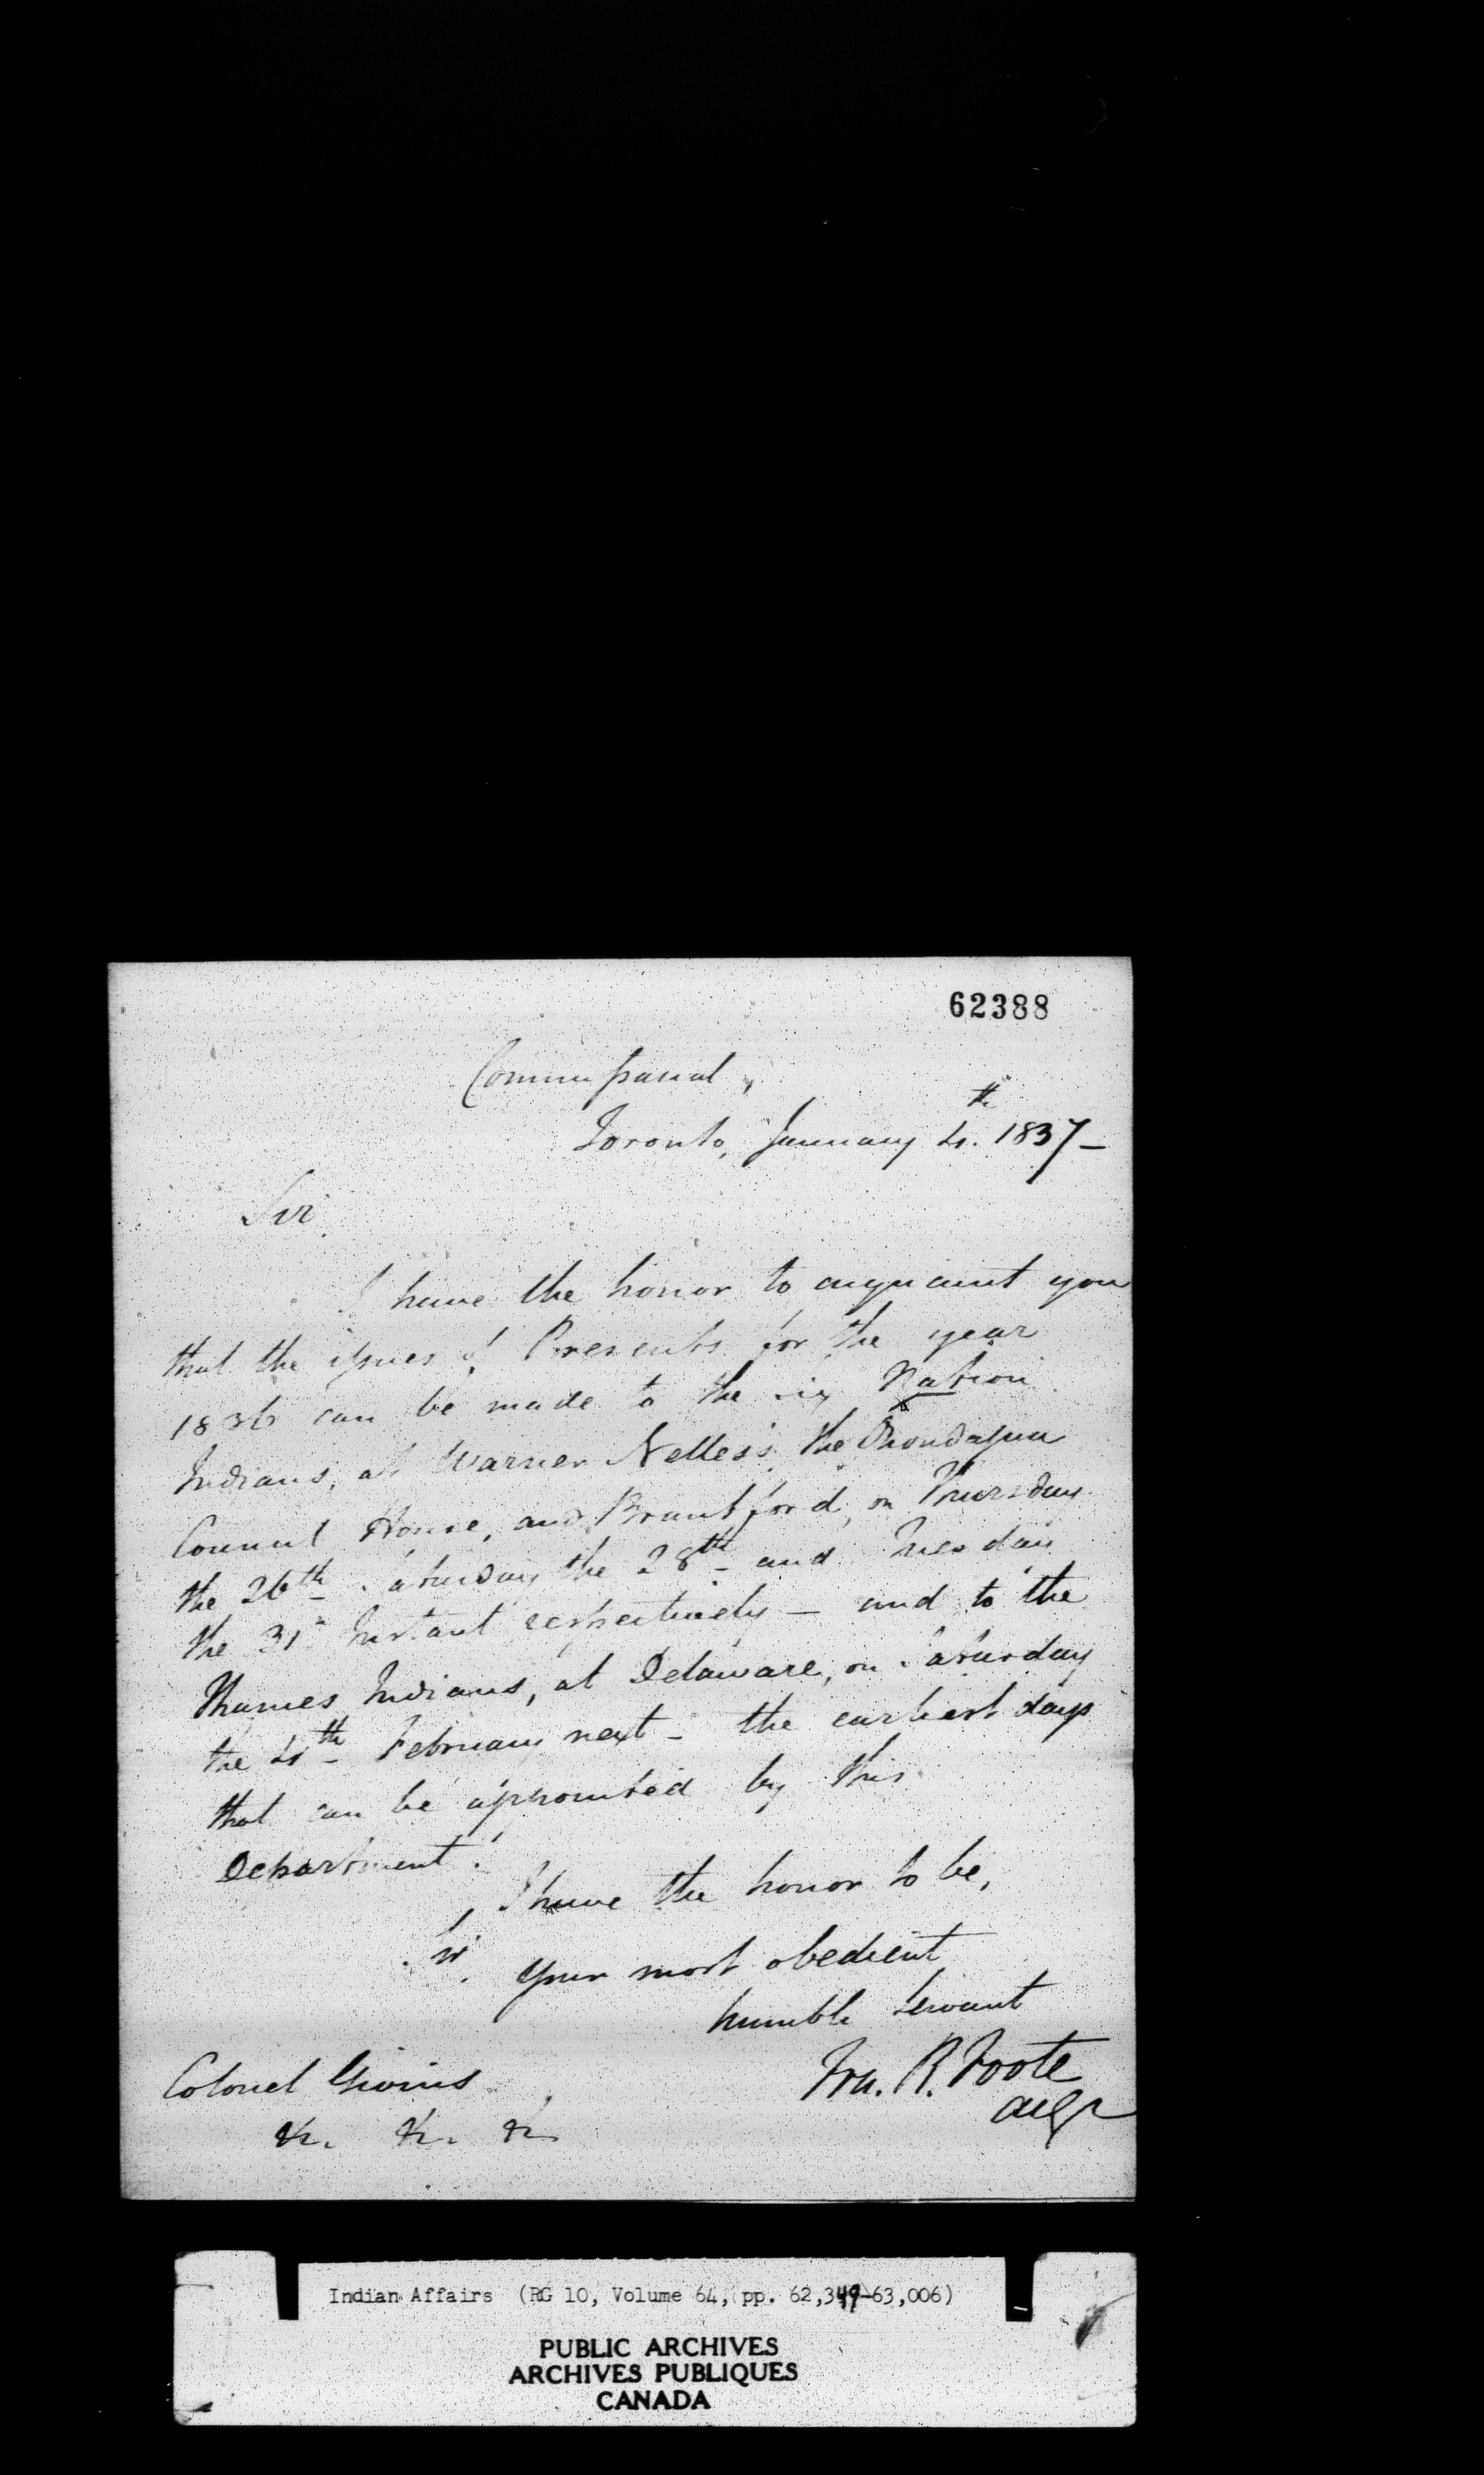 62388
Commissariat,
Toronto, January 4th 1837-
Sir
I have the honor to acquaint you
that the issues of Presents for the year
1836 can be made to the six Nation
Indians, at Warner Nelles's, the Onondagua
Council House, and Brantford, on Thursday
the 26th Saturday the 28th and Tuesday
the 31st Instant respectively - and to the
Thames Indians, at Delaware, on Saturday
the 4th February next - the earliest days
that can be appointed by this
Department.
I have the honor to be,
Sir
Your most obedient
humble servant
R. Foote
Colonel Givins
&c. &c. &c
Indian Affairs (RG 10, Volume 64, pp. 62,349-63,006)
PUBLIC ARCHIVES
ARCHIVES PUBLIQUES
CANADA